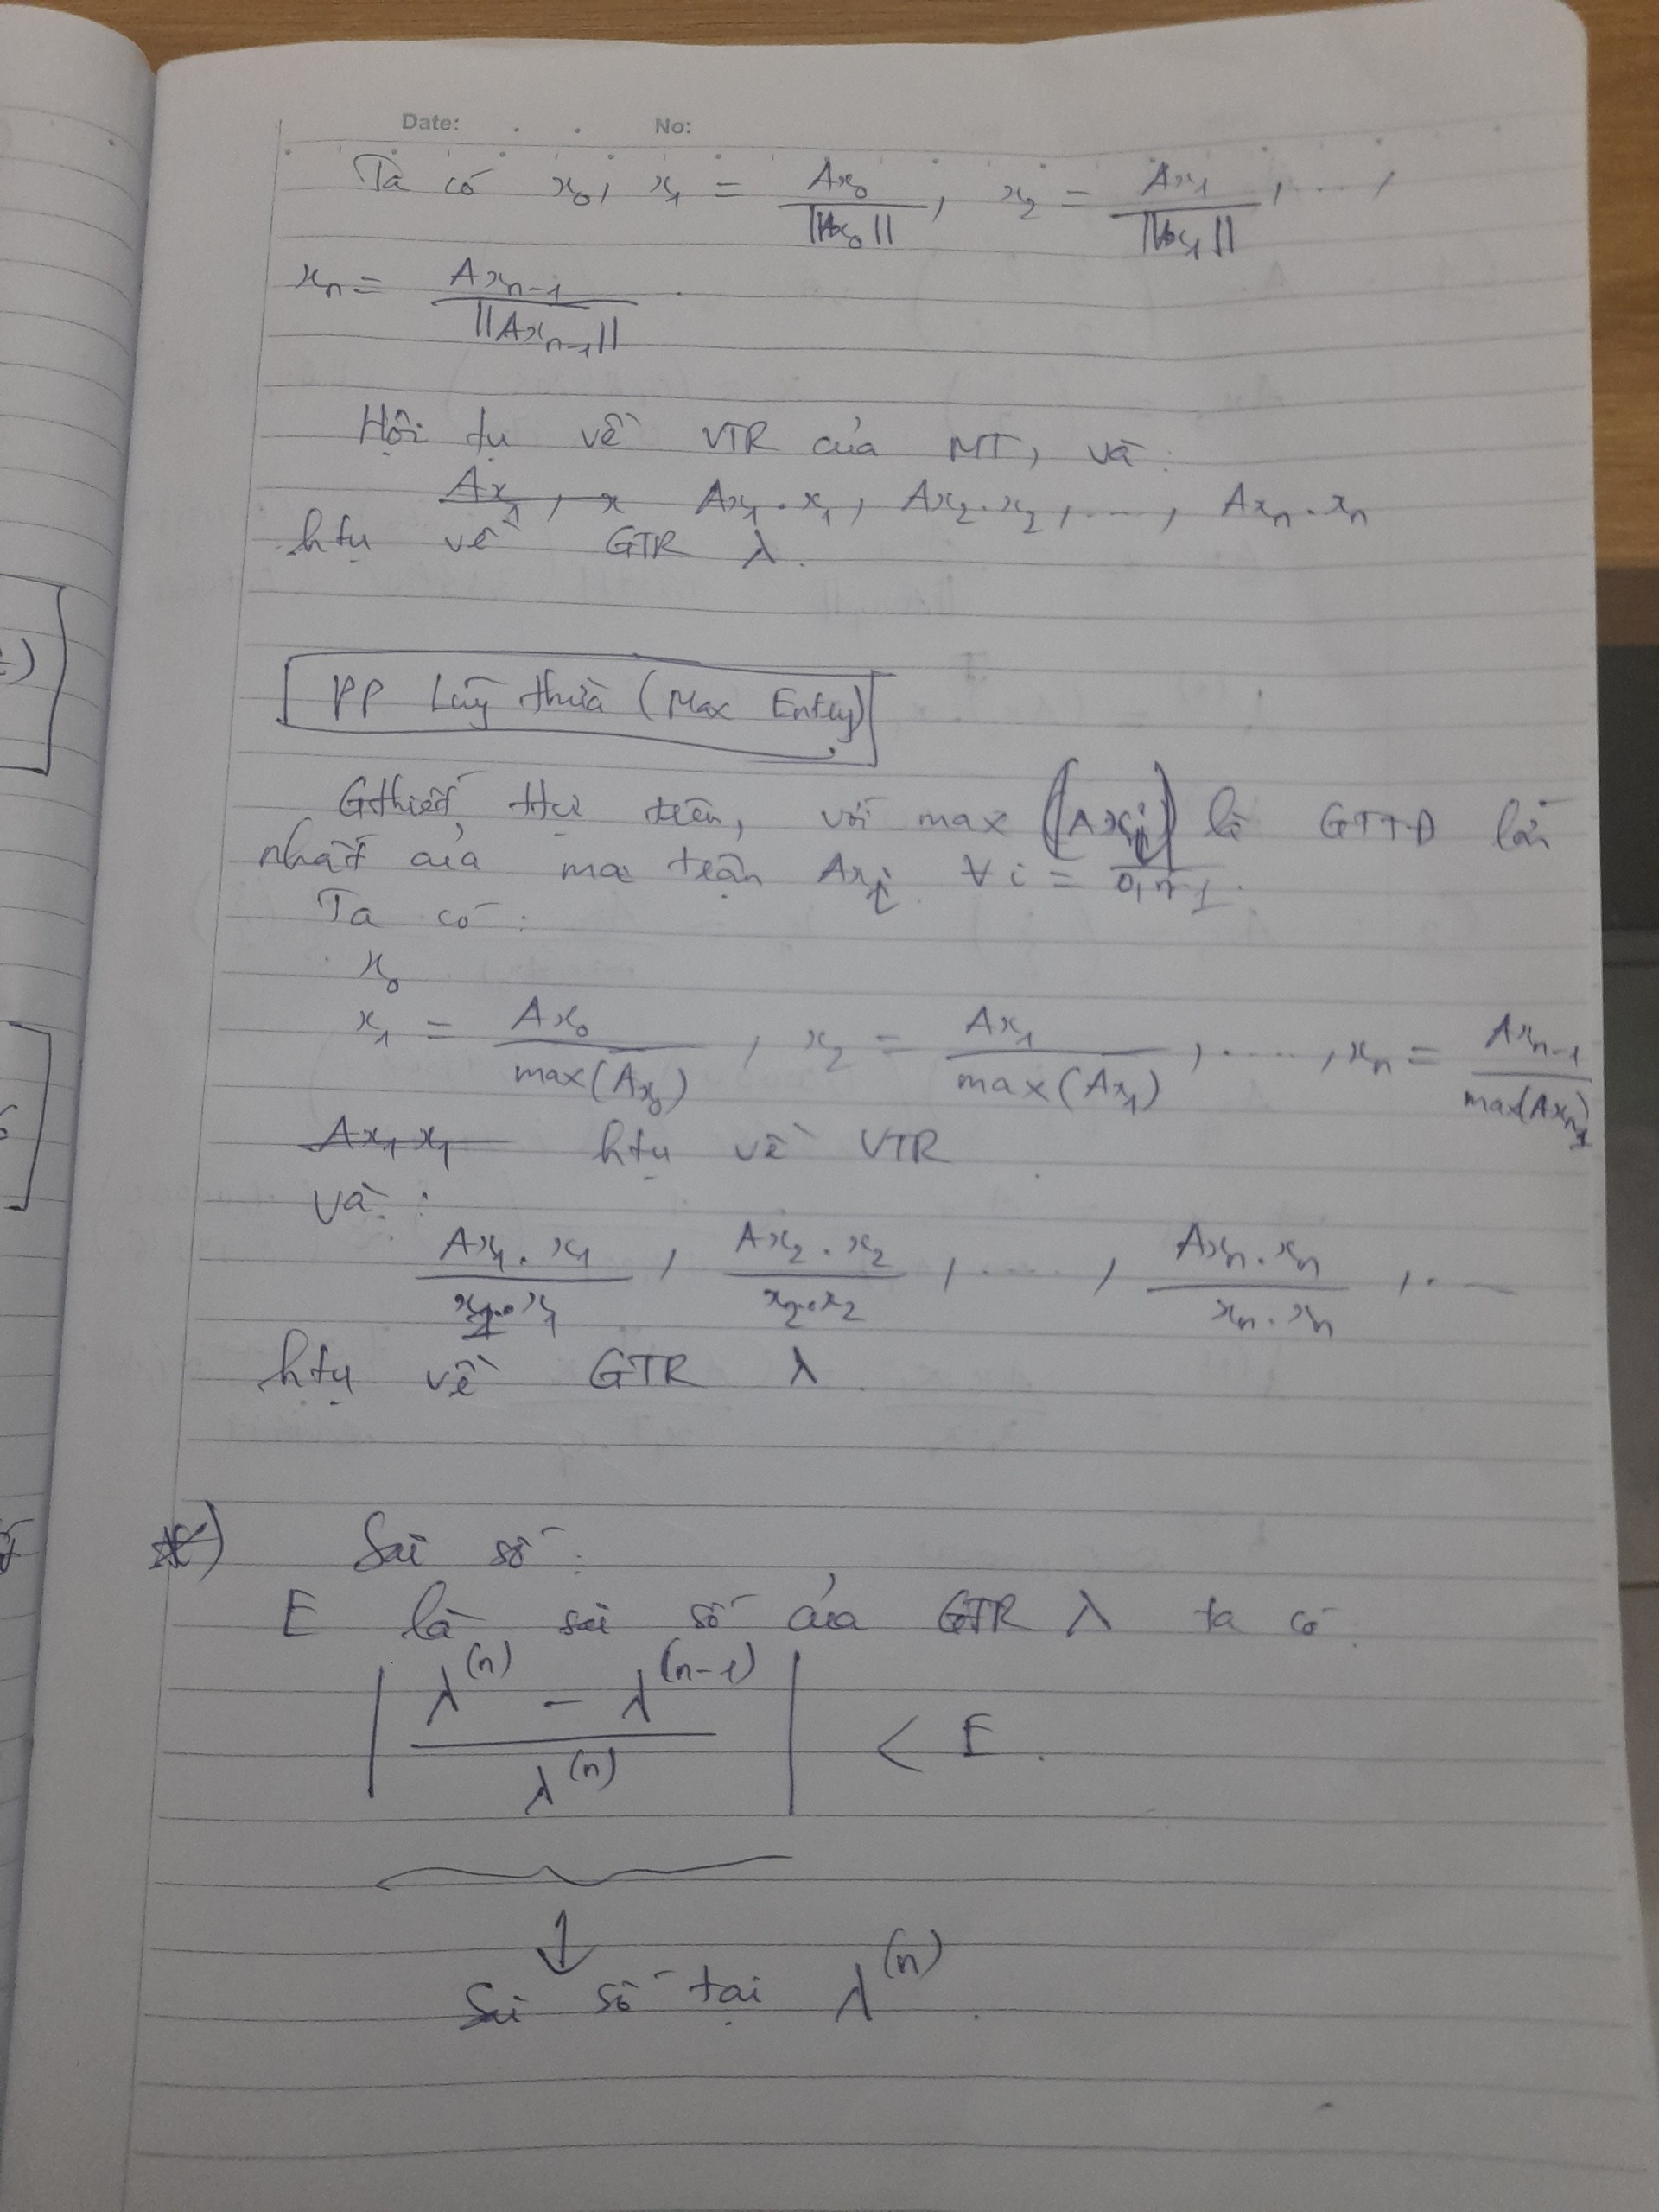 Date: . . No:
Ta có x₀, x₁ = Ax₀ / ||Ax₀||, x₂ = Ax₁ / ||Ax₁||, ...,
xₙ = Axₙ₋₁ / ||Axₙ₋₁||.
Hội tụ về VTR của MT, và:
Ax₁, x Ax₁.x₁, Ax₂.x₂, ..., Axₙ.xₙ
htụ về GTR λ.
PP Lũy thừa (Max Entry)
Gthiết ttự trên, với max (Axᵢ) là GTTĐ lớn
nhất của ma trận Axᵢ ∀i = 0,n-1.
Ta có:
x₀
x₁ = Ax₀ / max(Ax₀), x₂ = Ax₁ / max(Ax₁), ....., xₙ = Axₙ₋₁ / max(Axₙ₋₁)
Ax₁ x₁ htụ về VTR
và:
Ax₁.x₁ / x₁.x₁, Ax₂.x₂ / x₂.x₂, ....., Axₙ.xₙ / xₙ.xₙ, ...
htụ về GTR λ
*) Sai số:
E là sai số của GTR λ ta có:
| λ⁽ⁿ⁾ - λ⁽ⁿ⁻¹⁾ / λ⁽ⁿ⁾ | < E.
↓
Sai số tại λ⁽ⁿ⁾.